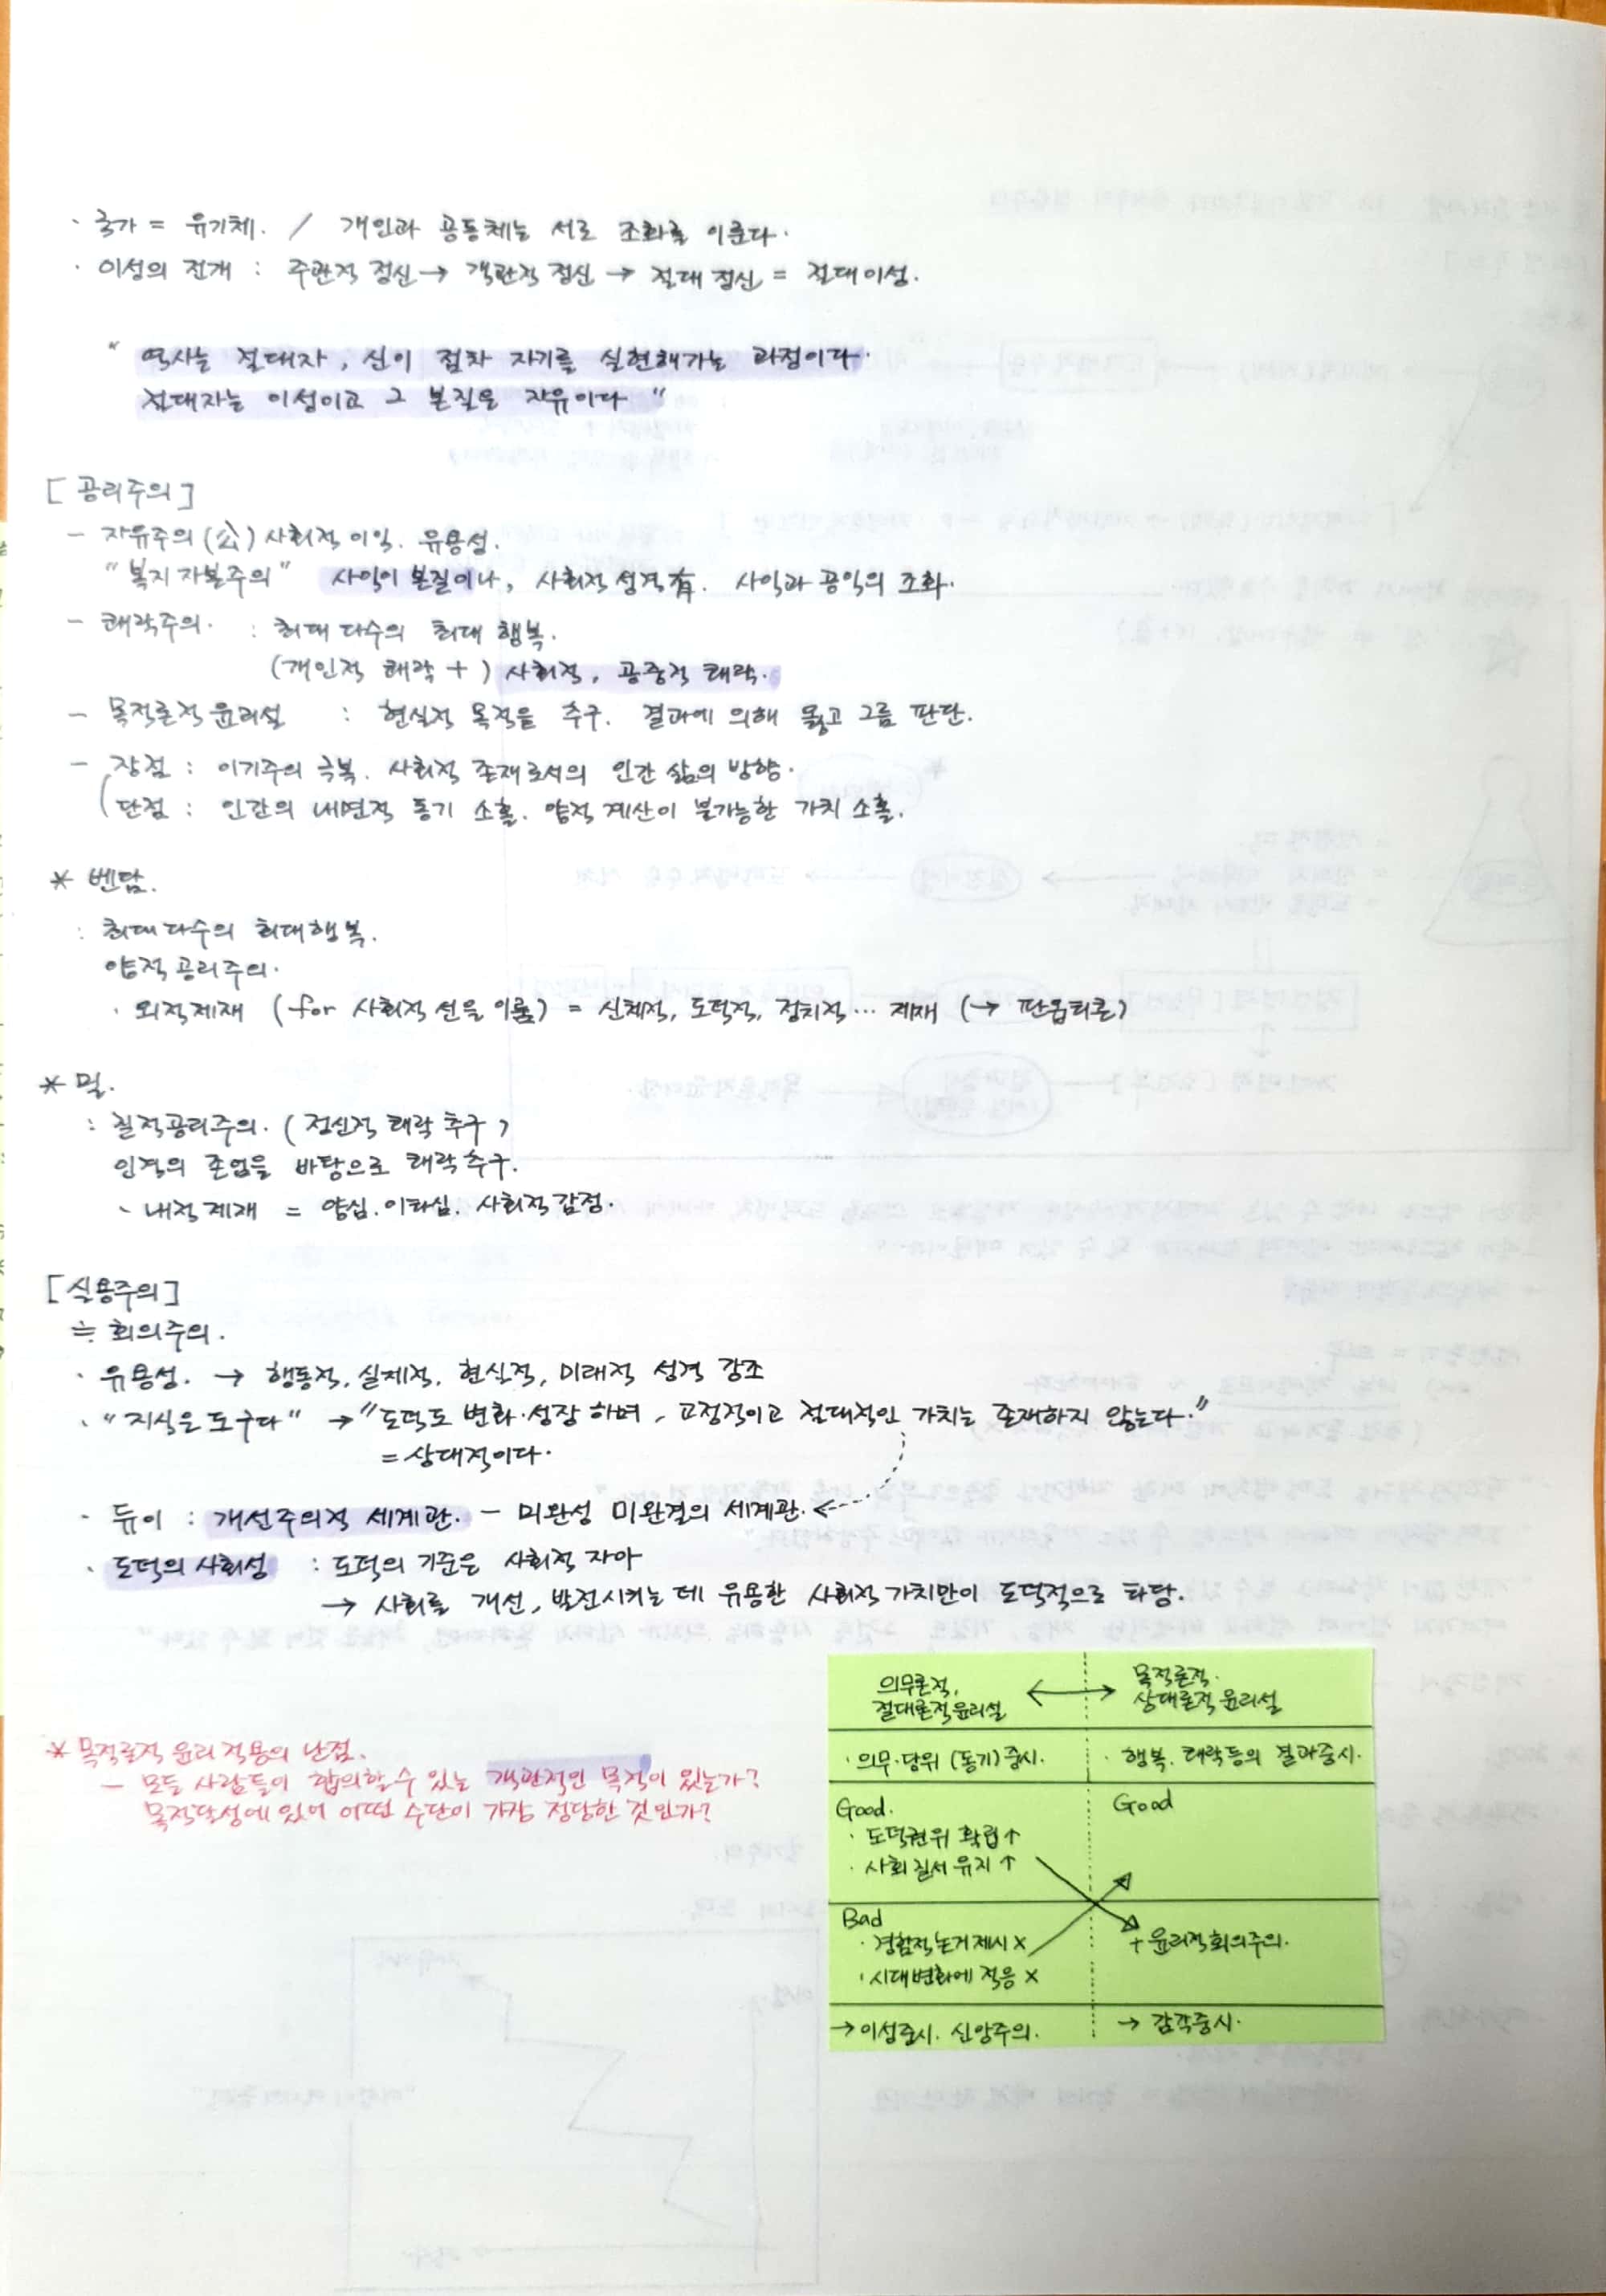 · 국가 = 유기체. / 개인과 공동체는 서로 조화를 이룬다.
· 이성의 전개 : 주관적 정신 → 객관적 정신 → 절대 정신 = 절대이성.
" 역사는 절대자, 신이 점차 자기를 실현해가는 과정이다.
절대자는 이성이고 그 본질은 자유이다 "
[공리주의]
- 자유주의 (公) 사회적 이익. 유용성.
"복지 자본주의" 사익이 본질이나, 사회적 성격 有. 사익과 공익의 조화.
- 쾌락주의. : 최대 다수의 최대 행복.
(개인적 쾌락 +) 사회적, 공중적 쾌락.
- 목적론적 윤리설 : 현실적 목적을 추구. 결과에 의해 옳고 그름 판단.
- 장점 : 이기주의 극복. 사회적 존재로서의 인간 삶의 방향.
단점 : 인간의 내면적 동기 소홀. 양적 계산이 불가능한 가치 소홀.
* 벤담.
: 최대 다수의 최대행복.
양적 공리주의.
· 외적제재 (for 사회적 선을 이룸) = 신체적, 도덕적, 정치적… 제재 (→ 판옵티콘)
* 밀.
: 질적공리주의. (정신적 쾌락 추구)
인격의 존엄을 바탕으로 쾌락추구.
· 내적 제재 = 양심. 이타심. 사회적 감정.
[실용주의]
≒ 회의주의.
· 유용성. → 행동적, 실제적, 현실적, 미래적 성격 강조
· "지식은 도구다" → "도덕도 변화·성장 하며, 고정적이고 절대적인 가치는 존재하지 않는다."
= 상대적이다.
· 듀이 : 개선주의적 세계관. - 미완성 미완결의 세계관. ←
· 도덕의 사회성 : 도덕의 기준은 사회적 자아
→ 사회를 개선, 발전시키는 데 유용한 사회적 가치만이 도덕적으로 타당.
* 목적론적 윤리 적용의 난점.
- 모든 사람들이 합의할 수 있는 객관적인 목적이 있는가?
목적달성에 있어 어떤 수단이 가장 정당한 것인가?
의무론적, 절대론적 윤리설 ↔ 목적론적. 상대론적 윤리설
· 의무·당위 (동기) 중시. · 행복. 쾌락등의 결과중시.
Good. Good
· 도덕권위 확립 ↑
· 사회 질서 유지 ↑
Bad
· 경험적 논거 제시 × + 윤리적 회의주의.
· 시대변화에 적응 ×
→ 이성중시. 신앙주의. → 감각중시.